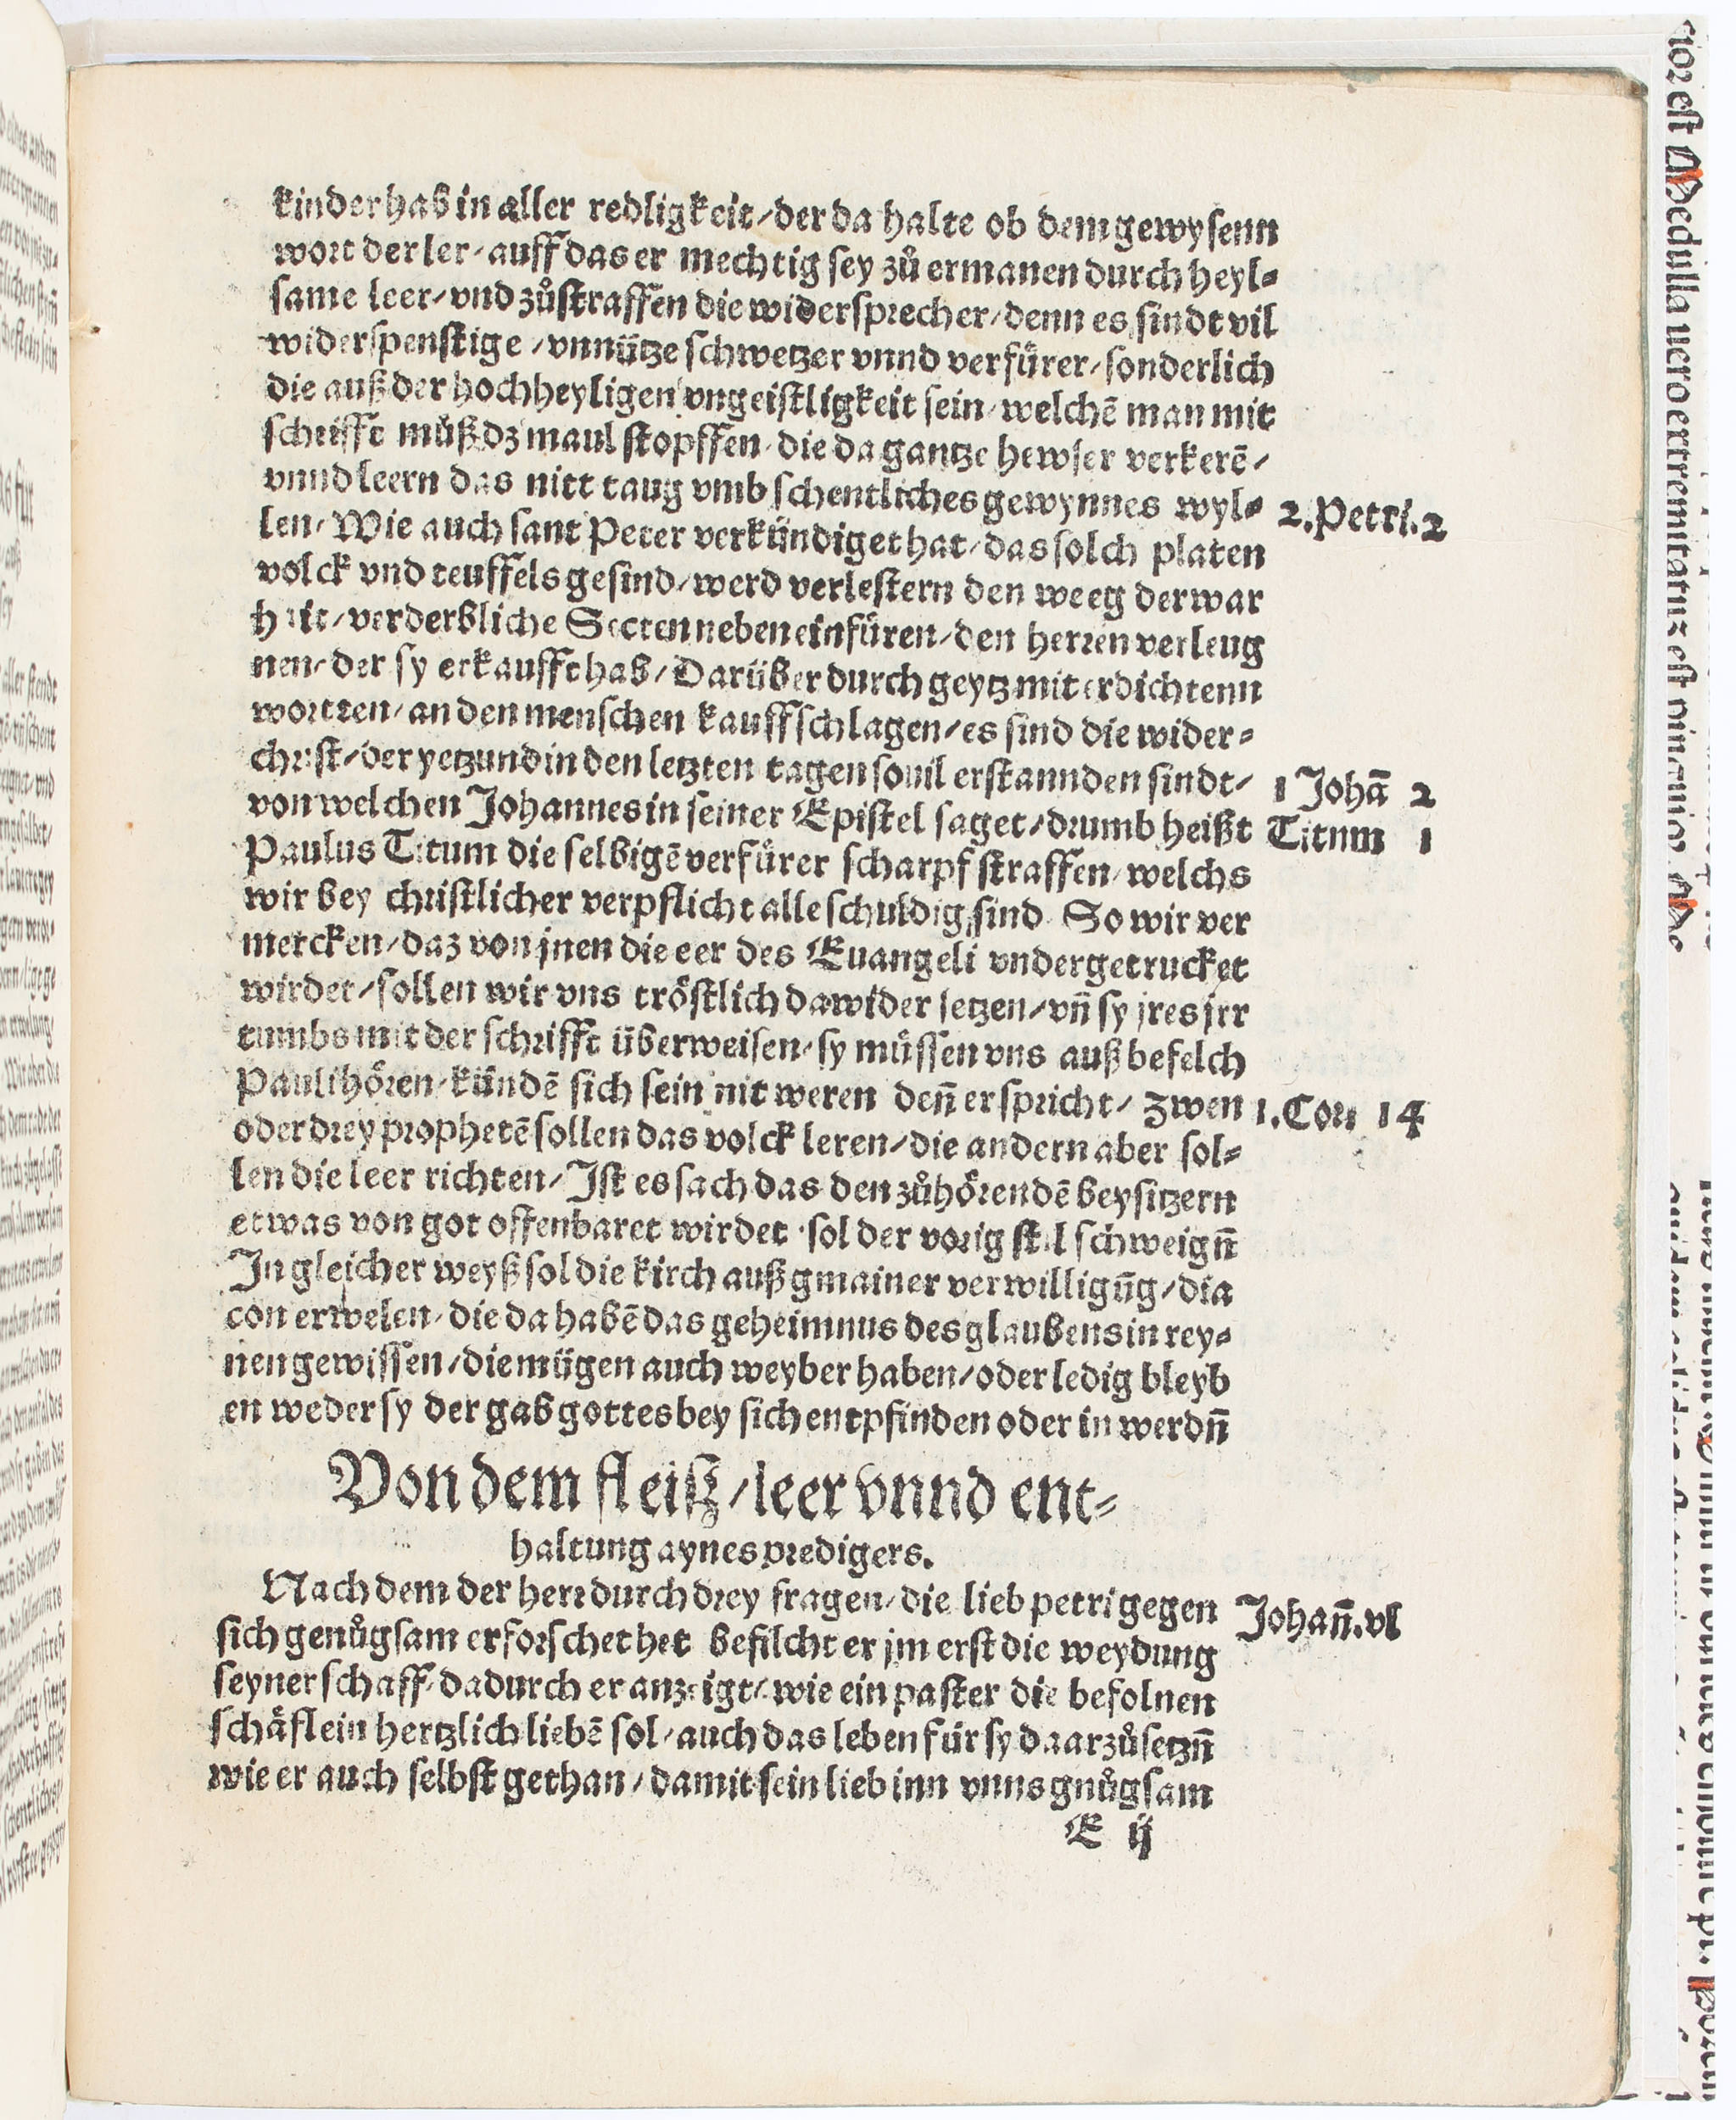 kinder hab in aller redligkeit / der da halte ob dem gewysenn
wort der ler / auff das er mechtig sey zů ermanen durch heyl⸗
same leer / vnd zůstraffen die widersprecher / denn es sindt vil
widerspenstige / vnnütze schwetzer vnnd verfürer / sonderlich
die auß der hochheyligen vngeistligkeit sein / welchē man mit
schrifft můß dz maul stopffen / die da gantze hewser verkerē /
vnnd leern das nitt taug vmb schentliches gewynnes wyl⸗
2. Petri. 2
len / Wie auch sant Peter verkündiget hat / das solch platen
volck vnd teuffels gesind / werd verlestern den weeg der war
heit / verderbliche Secten neben einfüren / den herren verleug
nen / der sy erkaufft hab / Darüber durch geytz mit erdichtenn
wortten / an den menschen kauffschlagen / es sind die wider⸗
christ / der yetzund in den letzten tagen souil erstannden sindt /
1 Johā 2
von welchen Johannes in seiner Epistel saget / drumb heißt
Titum 1
Paulus Titum die selbigē verfürer scharpf straffen / welchs
wir bey christlicher verpflicht alle schuldig sind. So wir ver
mercken / daz von jnen die eer des Euangeli vndergetrucket
wirdet / sollen wir vns tröstlich dawider setzen / vn̄ sy jres jrr
tumbs mit der schrifft überweisen / sy müssen vns auß befelch
Pauli hören / kündē sich sein nit weren den̄ er spricht / zwen
1. Cor. 14
oder drey prophetē sollen das volck leren / die andern aber sol⸗
len die leer richten / Ist es sach das den zůhörendē beysitzern
etwas von got offenbaret wirdet / sol der vorig stil schweign̄
In gleicher weyß sol die kirch auß gmainer verwilligūg / dia
con erwelen / die da habē das geheimnus des glaubens in rey⸗
nen gewissen / die mügen auch weyber haben / oder ledig bleyb
en weder sy der gab gottes bey sich entpfinden oder in werdn̄
Von dem fleiß / leer vnnd ent⸗
haltung aynes predigers.
Nach dem der herr durch drey fragen / die lieb petri gegen
Johan̄. vl
sich genůgsam erforschet het befilcht er jm erst die weydung
seyner schaff / dadurch er anzeigt / wie ein paster die befolnen
schäflein hertzlich liebē sol / auch das leben für sy daarzůsetzn̄
wie er auch selbst gethan / damit sein lieb inn vnns gnůgsam
E ij